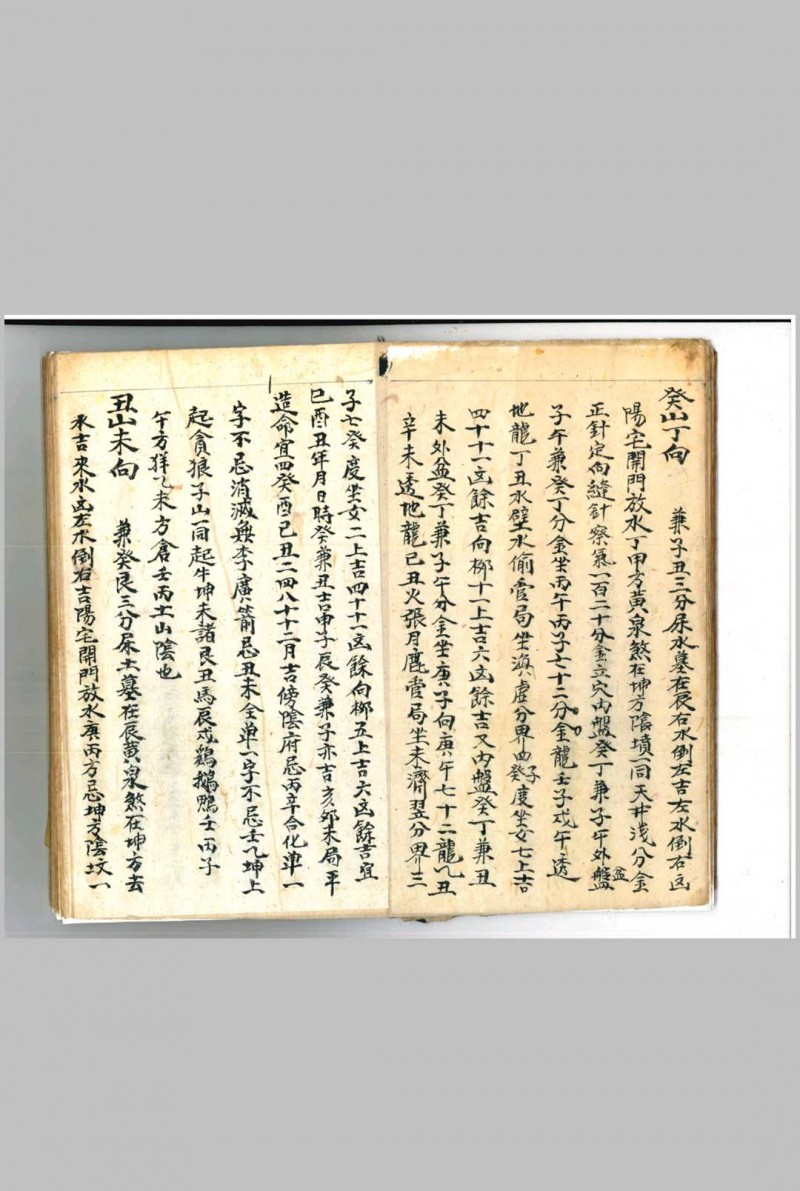 癸山丁向　兼子丑三分屎水墓在辰右水倒左吉左水倒右凶
陽宅開門放水丁甲方黃泉煞在坤方陰墳一同天井浅分金
正針定向縫針察氣一百二十分金立穴內盤癸丁兼子午外盤
子午兼癸丁分金坐丙午丙子七十二分金龍壬子戊午透
地龍丁丑水壁水偷營局坐虛分界子癸度坐女七上吉
四十十一凶餘吉向柳十一上吉六凶餘吉又內盤癸丁兼丑
未外盆癸丁兼子午分金坐庚子向庚午七十二龍乙丑
辛未透地龍己丑火張月鹿營局坐未濟翌分界三
子七癸度坐女二上吉四十十一凶餘向柳五上吉六凶餘吉宜
巳酉丑年月日時癸兼丑吉申子辰癸兼子亦吉亥卯未局平
造命宜四癸酉己丑二四八十十二月吉傍陰府忌丙辛合化單一
字不忌消滅李廣箭忌丑未全單一字不忌壬乙坤上
起貪狼子山一同起牛坤未諸艮丑馬辰戌鷄鵝鴨壬丙子
午方牂乙未方倉壬丙土山陰也
丑山未向　兼癸艮三分屎土墓在辰黃泉煞在坤方去
水吉來水凶左水倒右吉陽宅開門放水庚丙方忌坤方陰坟一